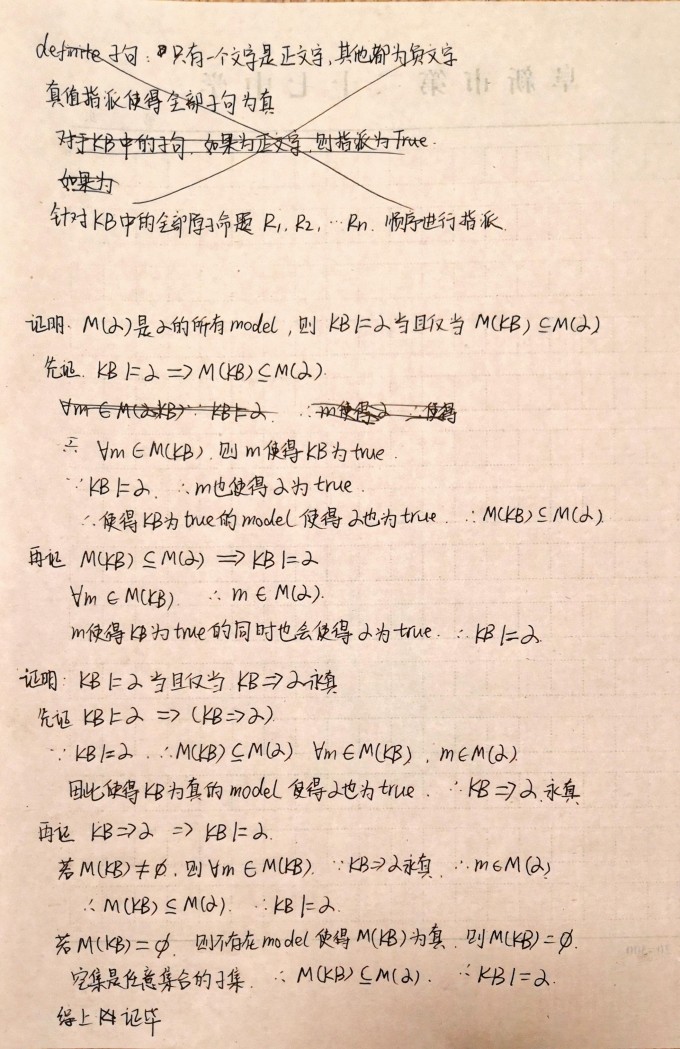 definite 子句：只有一个文字是正文字，其他都为负文字
真值指派使得全部子句为真
对于KB中的子句，如果为正文字，则指派为True.
如果为
针对KB中的全部原子命题 R₁, R₂, … Rn. 顺序进行指派.
证明: M(α)是α的所有model，则 KB⊨α 当且仅当 M(KB)⊆M(α)
先证 KB⊨α => M(KB)⊆M(α).
∀m∈M(KB), 则m使得KB为true.
∵KB⊨α, ∴m也使得α为true.
∴使得KB为true的model使得α也为true. ∴M(KB)⊆M(α)
再证 M(KB)⊆M(α) => KB⊨α
∀m∈M(KB) ∴m∈M(α).
m使得KB为true的同时也会使得α为true. ∴KB⊨α.
证明: KB⊨α 当且仅当 KB=>α永真
先证 KB⊨α => (KB=>α)
∵KB⊨α ∴M(KB)⊆M(α) ∀m∈M(KB), m∈M(α).
因此使得KB为真的model使得α也为true. ∴KB=>α永真
再证 KB=>α => KB⊨α.
若M(KB)≠∅, 则∀m∈M(KB). ∵KB=>α永真 ∴m∈M(α)
∴M(KB)⊆M(α). ∴KB⊨α.
若M(KB)=∅, 则不存在model使得M(KB)为真, 则M(KB)=∅.
空集是任意集合的子集. ∴M(KB)⊆M(α). ∴KB⊨α.
综上 证毕